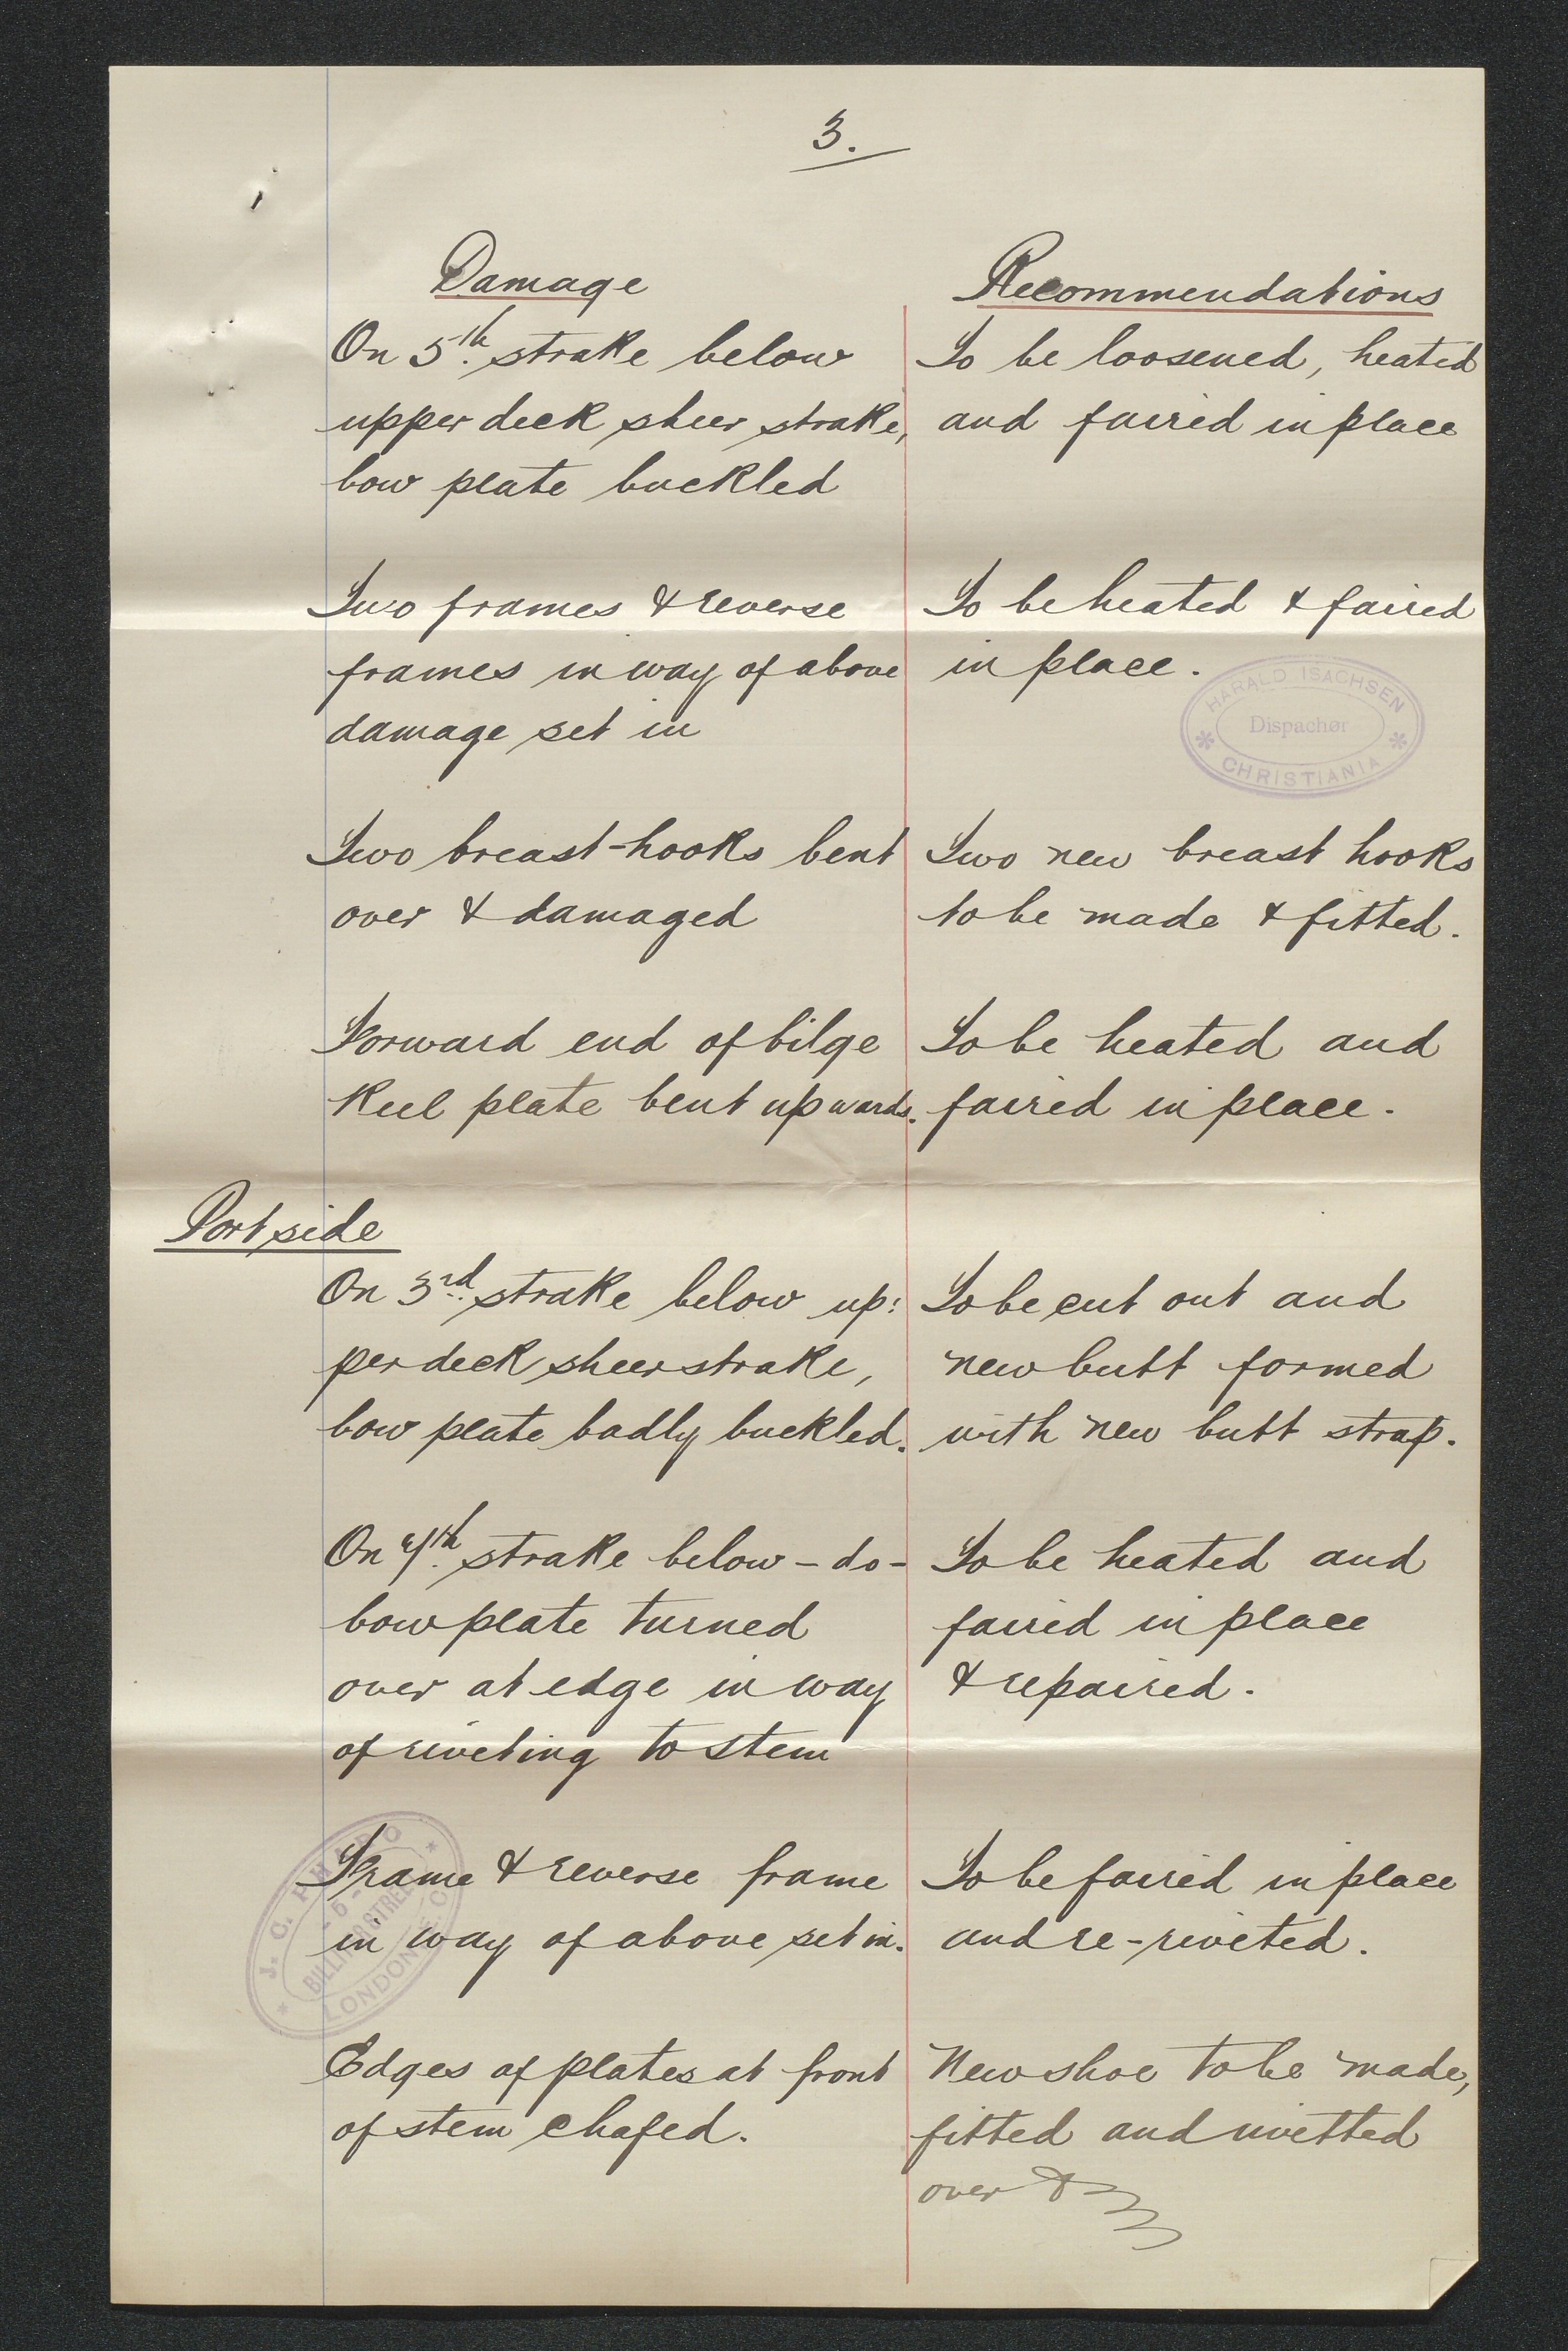 3.
Damage
On 5th. strake below
upper deck sheer strake,
bow plate buckled
Two frames & reverse
frames in way of above
damage set in
Two breast-hooks bent
over & damaged
Forward end of bilge
Keel plate bent upwards.
Port side
On 3rd. strake below up:
per deck sheerstrake,
bow plate badly buckled.
On 4th. strake below - do -
bow plate turned
over at edge in way
of riveting to stem
Frame & reverse frame
in way of above set in.
Edges of plates at front
of stem chafed.
Recommendations
To be loosened, heated
and faired in place
To be heated & faired
in place.
Two new breast hooks
to be made & fitted.
To be heated and
faired in place.
To be cut out and
new butt formed
with new butt strap.
To be heated and
faired in place
& repaired.
To be faired in place
and re-riveted.
New shoe to be made,
fitted and rivetted
over &
HARALD ISACHSEN
Dispachør
CHRISTIANIA
J. C.
STREET
LONDON E.C.